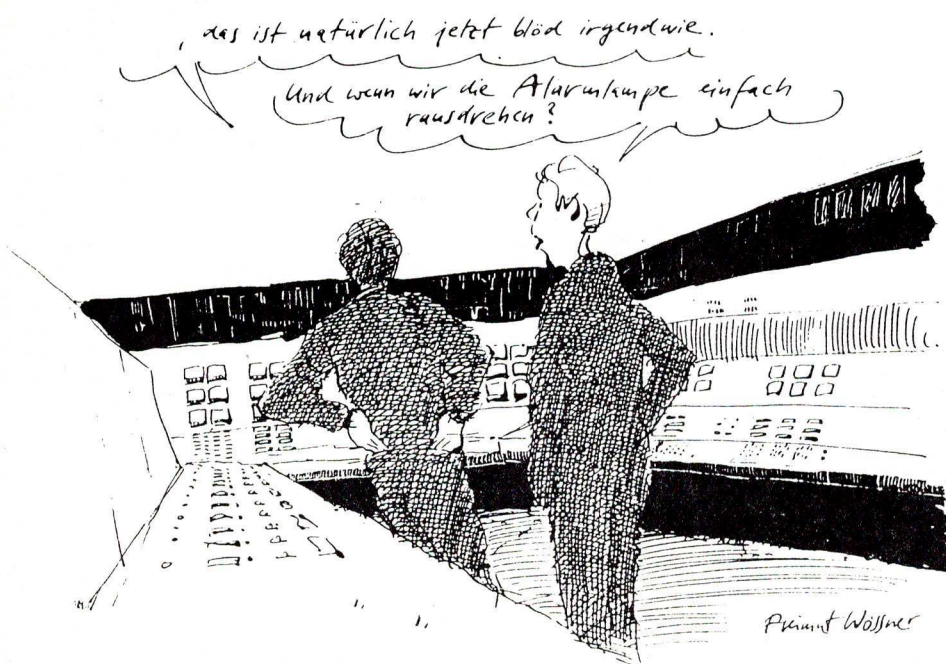 , das ist natürlich jetzt blöd irgendwie.
Und wenn wir die Alarmlampe einfach
rausdrehen?
Freimut Wössner